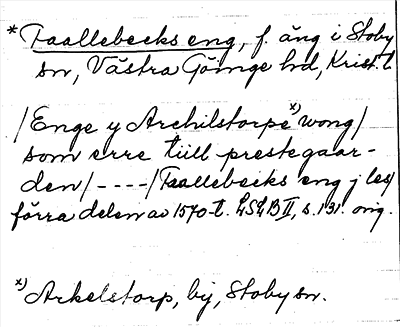 *Faallebecks eng, f. äng i Stoby
sn, Västra Göinge hd, Krist. l
/Enge y Archilstorpe x) wong/
som erre tiill prestegaar-
den/----/Faallebecks eng j les/
förra delen av 1570-t. LSLB II, s. 131. orig.
x) Arkelstorp, by, Stoby sn.